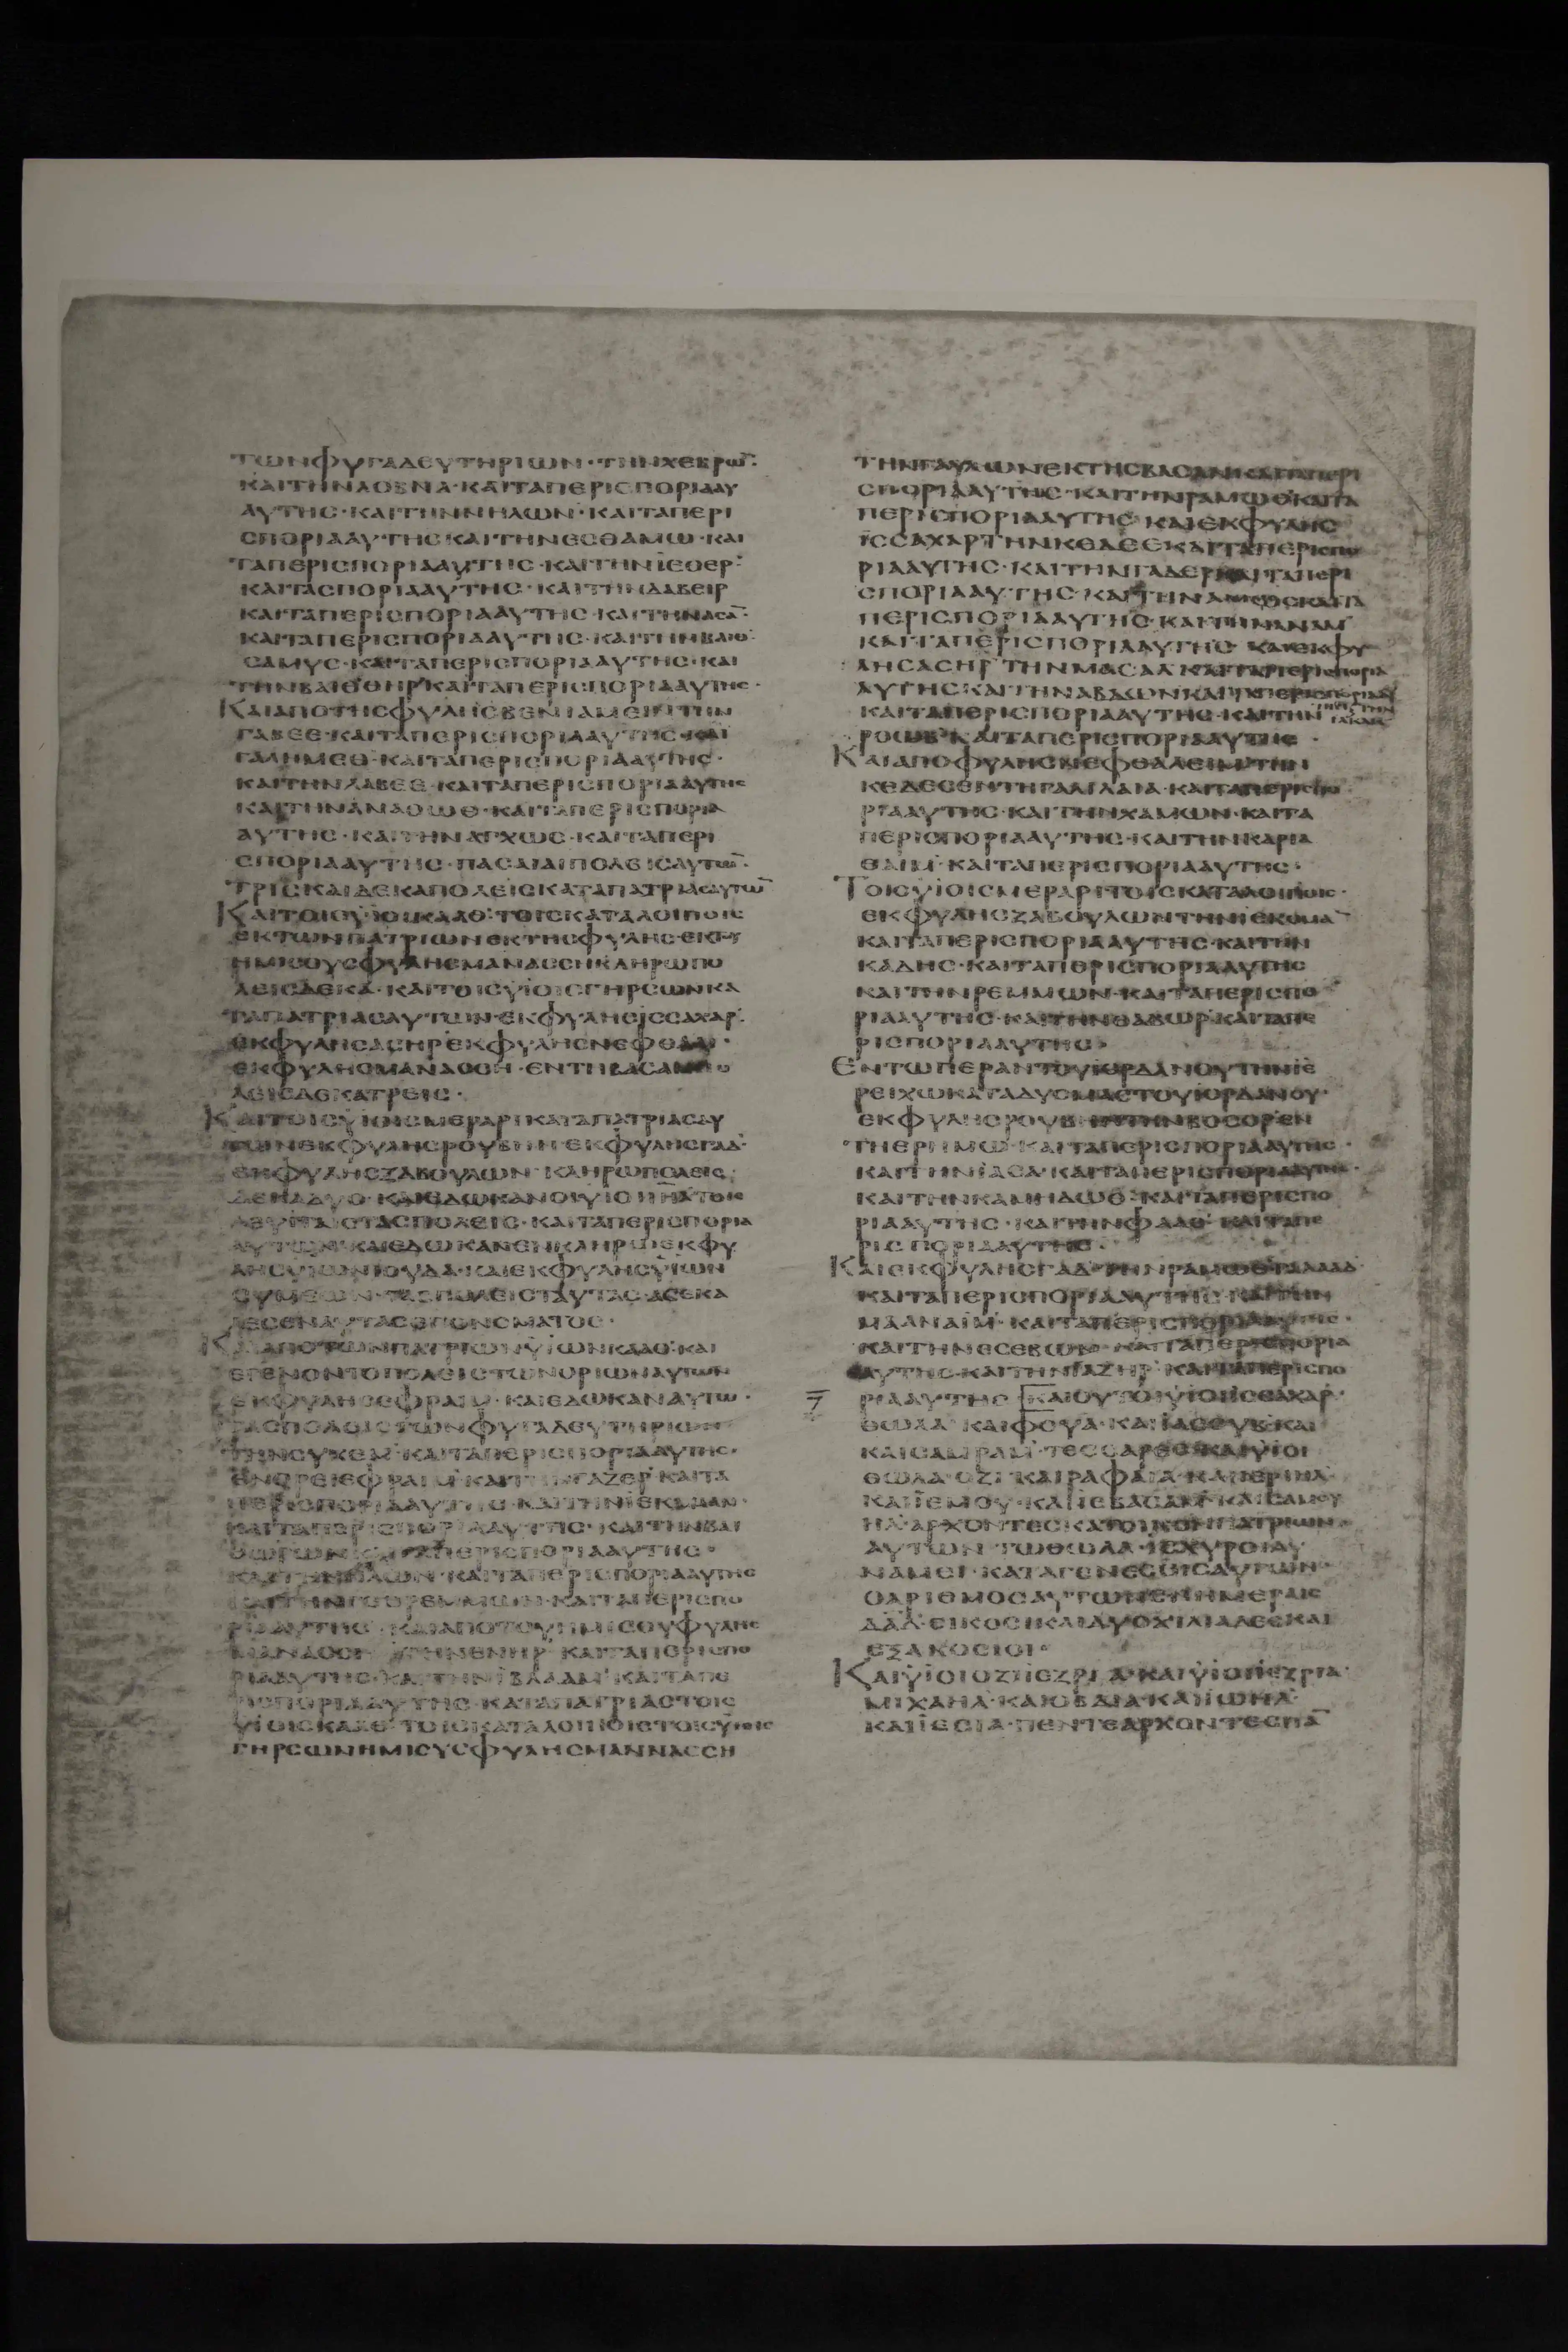 ΤΩΝΦΥΓΑΔΕΥΤΗΡΙΩΝ·ΤΗΝΧΕΒΡΩ̅·
ΚΑΙΤΗΝΛΟΒΝΑ·ΚΑΙΤΑΠΕΡΙΣΠΟΡΙΑΑΥ
ΑΥΤΗΣ·ΚΑΙΤΗΝΝΗΛΩΝ·ΚΑΙΤΑΠΕΡΙ
ΣΠΟΡΙΑΑΥΤΗΣΚΑΙΤΗΝΕΣΘΑΜΩ·ΚΑΙ
ΤΑΠΕΡΙΣΠΟΡΙΑΑΥΤΗΣ·ΚΑΙΤΗΝΙΕΘΕΡ·
ΚΑΙΤΑΣΠΟΡΙΑΑΥΤΗΣ·ΚΑΙΤΗΝΔΑΒΕΙΡ
ΚΑΙΤΑΠΕΡΙΣΠΟΡΙΑΑΥΤΗΣ·ΚΑΙΤΗΝΑΣΑ̅·
ΚΑΙΤΑΠΕΡΙΣΠΟΡΙΑΑΥΤΗΣ·ΚΑΙΤΗΝΒΑΙΘ·
ΣΑΜΥΣ·ΚΑΙΤΑΠΕΡΙΣΠΟΡΙΑΑΥΤΗΣ·ΚΑΙ
ΤΗΝΒΑΙΘΘΗΡ·ΚΑΙΤΑΠΕΡΙΣΠΟΡΙΑΑΥΤΗΣ·
ΚΑΙΑΠΟΤΗΣΦΥΛΗΣΒΕΝΙΑΜΕΙΝΤΗΝ
ΓΑΒΕΕ·ΚΑΙΤΑΠΕΡΙΣΠΟΡΙΑΑΥΤΗΣ·ΚΑΙ
ΓΑΛΗΜΕΘ·ΚΑΙΤΑΠΕΡΙΣΠΟΡΙΑΑΥΤΗΣ·
ΚΑΙΤΗΝΓΑΒΕΕ·ΚΑΙΤΑΠΕΡΙΣΠΟΡΙΑΑΥΤΗΣ
ΚΑΙΤΗΝΑΝΑΘΩΘ·ΚΑΙΤΑΠΕΡΙΣΠΟΡΙΑ
ΑΥΤΗΣ·ΚΑΙΤΗΝΑΓΧΩΣ·ΚΑΙΤΑΠΕΡΙ
ΣΠΟΡΙΑΑΥΤΗΣ·ΠΑΣΑΙΑΙΠΟΛΕΙΣΑΥΤΩ̅·
ΤΡΙΣΚΑΙΔΕΚΑΠΟΛΕΙΣΚΑΤΑΠΑΤΡΙΑΣΑΥΤΩ̅
ΚΑΙΤΟΙΣΥΙΟΙΣΚΑΑΘ·ΤΟΙΣΚΑΤΑΛΟΙΠΟΙΣ
ΕΚΤΩΝΠΑΤΡΙΩΝΕΚΤΗΣΦΥΛΗΣ·ΕΚΤΟΥ
ΗΜΙΣΟΥΣΦΥΛΗΣΜΑΝΑΣΣΗΚΛΗΡΩΠΟ
ΛΕΙΣΔΕΚΑ·ΚΑΙΤΟΙΣΥΙΟΙΣΓΗΡΣΩΝΚΑ
ΤΑΠΑΤΡΙΑΣΑΥΤΩΝ·ΕΚΦΥΛΗΣΙΣΣΑΧΑΡ·
ΕΚΦΥΛΗΣΑΣΗΡΕΚΦΥΛΗΣΝΕΦΘΑΛΙ·
ΕΚΦΥΛΗΣΜΑΝΑΣΣΗ·ΕΝΤΗΒΑΣΑΝΠΟ
ΛΕΙΣΔΕΚΑΤΡΕΙΣ·
ΚΑΙΤΟΙΣΥΙΟΙΣΜΕΡΑΡΙΚΑΤΑΠΑΤΡΙΑΣΑΥ
ΤΩΝΕΚΦΥΛΗΣΡΟΥΒΗΝΕΚΦΥΛΗΣΓΑΔ·
ΕΚΦΥΛΗΣΖΑΒΟΥΛΩΝ·ΚΛΗΡΩΠΟΛΕΙΣ
ΔΕΚΑΔΥΟ·ΚΑΙΕΔΩΚΑΝΟΙΥΙΟΙΙΗΛΤΟΙΣ
ΛΕΥΙΤΑΙΣΤΑΣΠΟΛΕΙΣ·ΚΑΙΤΑΠΕΡΙΣΠΟΡΙΑ
ΑΥΤΩΝ·ΚΑΙΕΔΩΚΑΝΕΝΚΛΗΡΩΕΚΦΥ
ΛΗΣΥΙΩΝΙΟΥΔΑ·ΚΑΙΕΚΦΥΛΗΣΥΙΩΝ
ΣΥΜΕΩΝ·ΤΑΣΠΟΛΕΙΣΤΑΥΤΑΣ·ΑΣΕΚΑ
ΛΕΣΕΝΑΥΤΑΣΕΠΟΝΟΜΑΤΟΣ·
ΚΑΙΑΠΟΤΩΝΠΑΤΡΙΩΝΥΙΩΝΚΑΑΘ·ΚΑΙ
ΕΓΕΝΟΝΤΟΠΟΛΕΙΣΤΩΝΟΡΙΩΝΑΥΤΩΝ
ΕΚΦΥΛΗΣΕΦΡΑΙΜ·ΚΑΙΕΔΩΚΑΝΑΥΤΩ·
ΤΑΣΠΟΛΕΙΣΤΩΝΦΥΓΑΔΕΥΤΗΡΙΩΝ
ΤΗΝΣΥΧΕΜ·ΚΑΙΤΑΠΕΡΙΣΠΟΡΙΑΑΥΤΗΣ·
ΕΝΟΡΕΙΕΦΡΑΙΜ·ΚΑΙΤΗΝΓΑΖΕΡ·ΚΑΙΤΑ
ΠΕΡΙΣΠΟΡΙΑΑΥΤΗΣ·ΚΑΙΤΗΝΙΕΚΜΑΑΝ·
ΚΑΙΤΑΠΕΡΙΣΠΟΡΙΑΑΥΤΗΣ·ΚΑΙΤΗΝΒΑΙ
ΘΩΡΩΝ·ΚΑΙΤΑΠΕΡΙΣΠΟΡΙΑΑΥΤΗΣ·
ΚΑΙΤΗΝΗΛΩΝ·ΚΑΙΤΑΠΕΡΙΣΠΟΡΙΑΑΥΤΗΣ
ΚΑΙΤΗΝΓΕΘΡΕΜΜΩΝ·ΚΑΙΤΑΠΕΡΙΣΠΟ
ΡΙΑΑΥΤΗΣ·ΚΑΙΑΠΟΤΟΥΗΜΙΣΟΥΦΥΛΗΣ
ΜΑΝΑΣΣΗ·ΤΗΝΕΝΗΡ·ΚΑΙΤΑΠΕΡΙΣΠΟ
ΡΙΑΑΥΤΗΣ·ΚΑΙΤΗΝΙΒΛΑΑΜ·ΚΑΙΤΑΠΕ
ΡΙΣΠΟΡΙΑΑΥΤΗΣ·ΚΑΤΑΠΑΤΡΙΑΣΤΟΙΣ
ΥΙΟΙΣΚΑΑΘ·ΤΟΙΣΚΑΤΑΛΟΙΠΟΙΣΤΟΙΣΥΙΟΙΣ
ΓΗΡΣΩΝΗΜΙΣΥΣΦΥΛΗΣΜΑΝΝΑΣΣΗ
ΤΗΝΓΑΥΛΩΝΕΚΤΗΣΒΑΣΑΝΚΑΙΤΑΠΕΡΙ
ΣΠΟΡΙΑΑΥΤΗΣ·ΚΑΙΤΗΝΡΑΜΩΘΚΑΙΤΑ
ΠΕΡΙΣΠΟΡΙΑΑΥΤΗΣ·ΚΑΙΕΚΦΥΛΗΣ
ΙΣΣΑΧΑΡΤΗΝΚΕΔΕΣΚΑΙΤΑΠΕΡΙΣΠΟ
ΡΙΑΑΥΤΗΣ·ΚΑΙΤΗΝΓΑΔΕΡΚΑΙΤΑΠΕΡΙ
ΣΠΟΡΙΑΑΥΤΗΣ·ΚΑΙΤΗΝΑΜΩΣΚΑΙΤΑ
ΠΕΡΙΣΠΟΡΙΑΑΥΤΗΣ·ΚΑΙΤΗΝΑΝΑΜ
ΚΑΙΤΑΠΕΡΙΣΠΟΡΙΑΑΥΤΗΣ·ΚΑΙΕΚΦΥ
ΛΗΣΑΣΗΡ·ΤΗΝΜΑΣΑΛΚΑΙΤΑΠΕΡΙΣΠΟΡΙΑ
ΑΥΤΗΣΚΑΙΤΗΝΑΒΔΩΝΚΑΙΤΑΠΕΡΙΣΠΟΡΙΑΑΥ
ΚΑΙΤΑΠΕΡΙΣΠΟΡΙΑΑΥΤΗΣ·ΚΑΙΤΗΝ
ΡΟΩΒ·ΚΑΙΤΑΠΕΡΙΣΠΟΡΙΑΑΥΤΗΣ·
ΚΑΙΑΠΟΦΥΛΗΣΝΕΦΘΑΛΕΙΜ·ΤΗΝ
ΚΕΔΕΣΕΝΤΗΓΑΛΙΛΑΙΑ·ΚΑΙΤΑΠΕΡΙΣΠΟ
ΡΙΑΑΥΤΗΣ·ΚΑΙΤΗΝΧΑΜΩΝ·ΚΑΙΤΑ
ΠΕΡΙΣΠΟΡΙΑΑΥΤΗΣ·ΚΑΙΤΗΝΚΑΡΙΑ
ΘΑΙΜ·ΚΑΙΤΑΠΕΡΙΣΠΟΡΙΑΑΥΤΗΣ·
ΤΟΙΣΥΙΟΙΣΜΕΡΑΡΙΤΟΙΣΚΑΤΑΛΟΙΠΟΙΣ·
ΕΚΦΥΛΗΣΖΑΒΟΥΛΩΝΤΗΝΙΕΚΟΜΑ̅
ΚΑΙΤΑΠΕΡΙΣΠΟΡΙΑΑΥΤΗΣ·ΚΑΙΤΗΝ
ΚΑΔΗΣ·ΚΑΙΤΑΠΕΡΙΣΠΟΡΙΑΑΥΤΗΣ
ΚΑΙΤΗΝΡΕΜΜΩΝ·ΚΑΙΤΑΠΕΡΙΣΠΟ
ΡΙΑΑΥΤΗΣ·ΚΑΙΤΗΝΘΑΒΩΡ·ΚΑΙΤΑΠΕ
ΡΙΣΠΟΡΙΑΑΥΤΗΣ·
ΕΝΤΩΠΕΡΑΝΤΟΥΙΟΡΔΑΝΟΥΤΗΝΙΕ
ΡΕΙΧΩΚΑΤΑΔΥΣΜΑΣΤΟΥΙΟΡΔΑΝΟΥ·
ΕΚΦΥΛΗΣΡΟΥΒΗΝΤΗΝΒΟΣΟΡΕΝ
ΤΗΕΡΗΜΩ·ΚΑΙΤΑΠΕΡΙΣΠΟΡΙΑΑΥΤΗΣ·
ΚΑΙΤΗΝΙΑΣΑ·ΚΑΙΤΑΠΕΡΙΣΠΟΡΙΑΑΥΤΗΣ·
ΚΑΙΤΗΝΚΑΜΗΔΩΘ·ΚΑΙΤΑΠΕΡΙΣΠΟ
ΡΙΑΑΥΤΗΣ·ΚΑΙΤΗΝΦΑΑΘ·ΚΑΙΤΑΠΕ
ΡΙΣΠΟΡΙΑΑΥΤΗΣ·
ΚΑΙΕΚΦΥΛΗΣΓΑΔ·ΤΗΝΡΑΜΩΘΓΑΛΑΑΔ
ΚΑΙΤΑΠΕΡΙΣΠΟΡΙΑΑΥΤΗΣ·ΚΑΙΤΗΝ
ΜΑΑΝΑΙΜ·ΚΑΙΤΑΠΕΡΙΣΠΟΡΙΑΑΥΤΗΣ·
ΚΑΙΤΗΝΕΣΕΒΩΝ·ΚΑΙΤΑΠΕΡΙΣΠΟΡΙΑ
ΑΥΤΗΣ·ΚΑΙΤΗΝΓΑΖΗΡ·ΚΑΙΤΑΠΕΡΙΣΠΟ
ΡΙΑΑΥΤΗΣ ΚΑΙΟΥΤΟΙΥΙΟΙΙΣΣΑΧΑΡ·
ΘΩΛΑ·ΚΑΙΦΟΥΑ·ΚΑΙΙΑΣΟΥΒ·ΚΑΙ
ΚΑΙΣΑΜΡΑΜ·ΤΕΣΣΑΡΕΣΚΑΙΥΙΟΙ
ΘΩΛΑ·ΟΖΙ·ΚΑΙΡΑΦΑΙΑ·ΚΑΙΙΕΡΙΗΛ·
ΚΑΙΙΕΜΟΥ·ΚΑΙΙΕΒΑΣΑΜ·ΚΑΙΣΑΜΟΥ
ΗΛ·ΑΡΧΟΝΤΕΣΚΑΤΟΙΚΟΝΠΑΤΡΙΩΝ
ΑΥΤΩΝ·ΤΩΘΩΛΑ·ΙΣΧΥΡΟΙΔΥ
ΝΑΜΕΙ·ΚΑΤΑΓΕΝΕΣΕΙΣΑΥΤΩΝ·
ΟΑΡΙΘΜΟΣΑΥΤΩΝΕΝΗΜΕΡΑΙΣ
ΔΑΔ·ΕΙΚΟΣΙΚΑΙΔΥΟΧΙΛΙΑΔΕΣΚΑΙ
ΕΞΑΚΟΣΙΟΙ·
ΚΑΙΥΙΟΙΟΖΙΙΕΖΡΙΑ·ΚΑΙΥΙΟΙΙΕΖΡΙΑ·
ΜΙΧΑΗΛ·ΚΑΙΟΒΔΙΑ·ΚΑΙΙΩΗΛ·
ΚΑΙΙΕΣΙΑ·ΠΕΝΤΕΑΡΧΟΝΤΕΣΠΑ̅